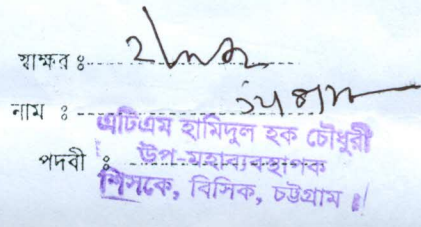 স্বাক্ষর ঃ
নাম ঃ
এটিএম হামিদুল হক চৌধুরী
পদবী ঃ উপ-মহাব্যবস্থাপক
শিসকে, বিসিক, চট্টগ্রাম।